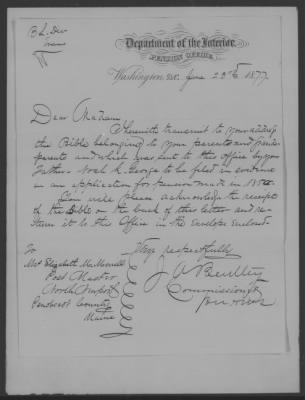 Department of the Interior,
PENSION OFFICE,
Washington, D.C. June 23rd 1877
Dear Madam
I herewith transmit to your address
the Bible belonging to your parents and grand
parents and which was sent to this office by your
Father Noah K. George to be filed in evidence
in an application for pension made in 18
You will please acknowledge the receipt
of the Bible on the back of this letter and re-
turn it to this Office in the Envelope Enclosed.
Very respectfully
J A Bentley
Commissioner
To
Mrs Elizabeth M. Merrill
Post Master
North Newport
Penobscot County
Maine